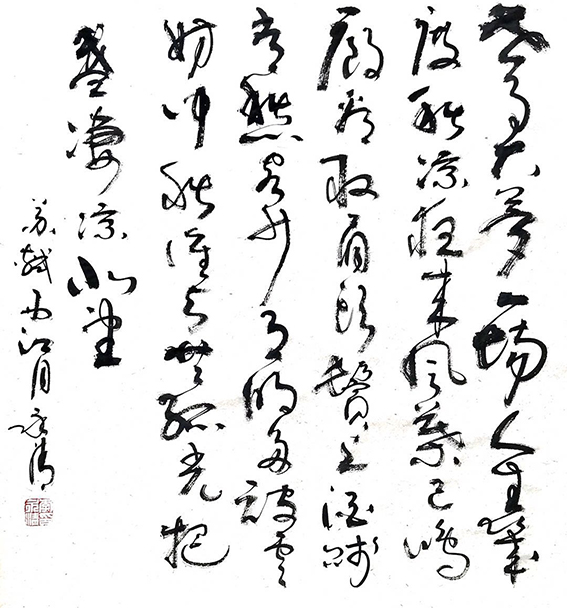 世事大梦一场人生几
度秋凉夜来风叶已鸣
廊看取眉头鬓上酒贱
常愁客少月明多被云
妨中秋谁与共孤光把
盏凄凉北望
苏轼西江月